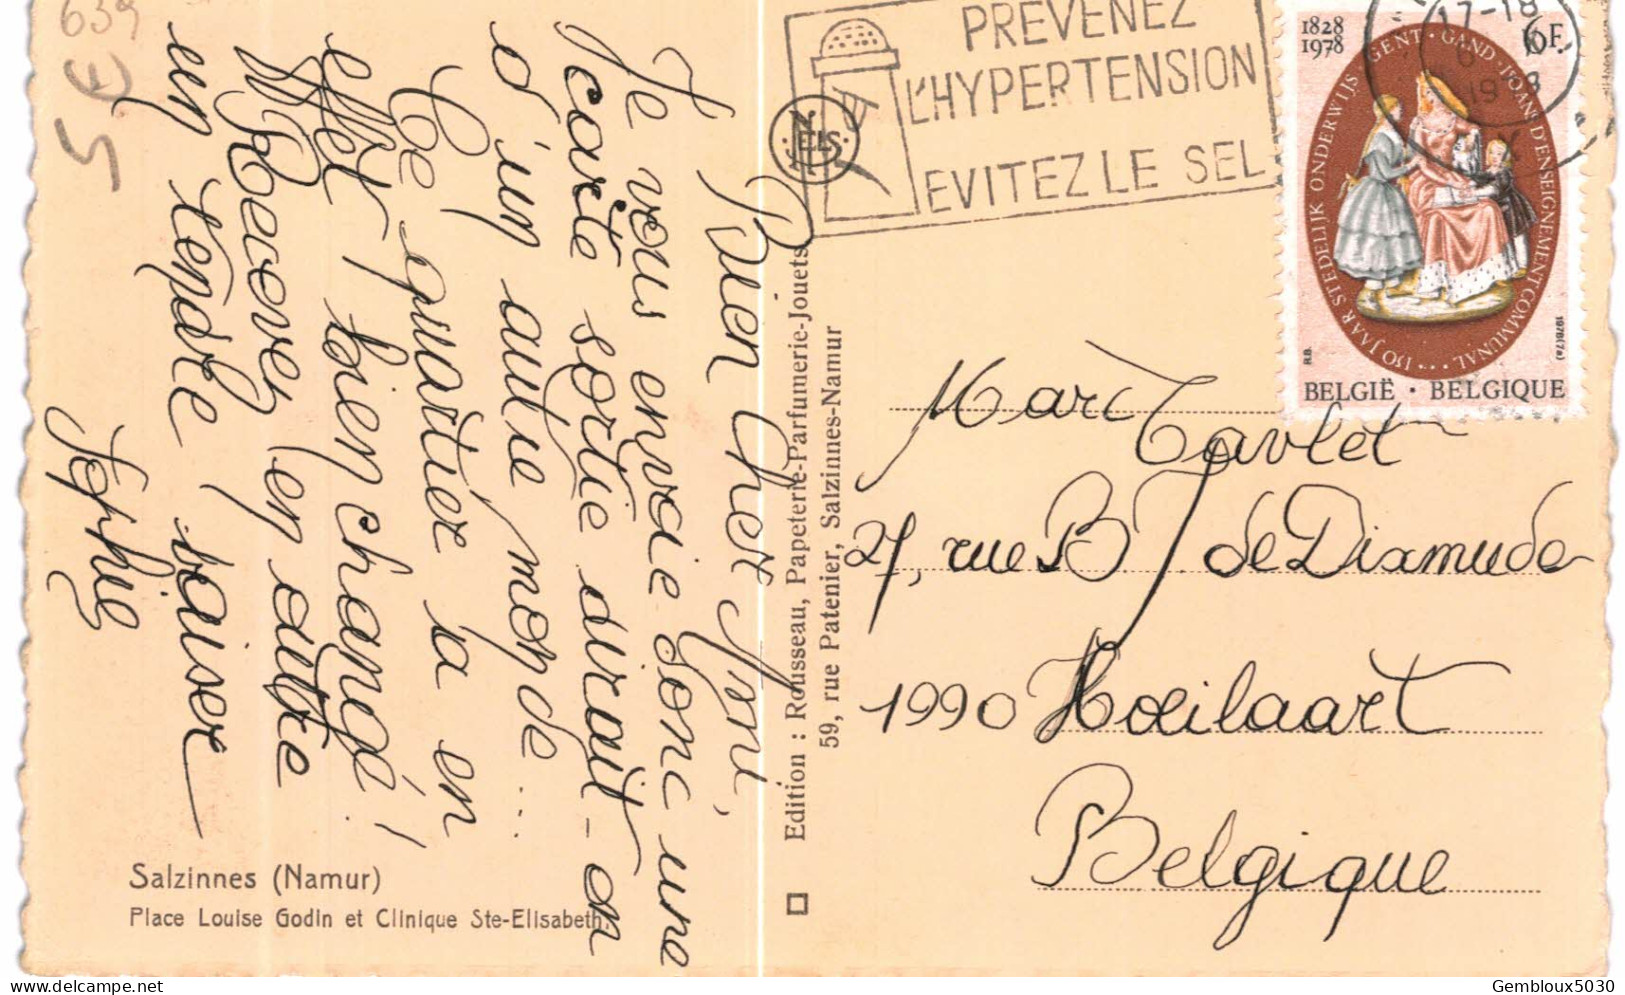 639
5 €
Bien cher Yoni,
Je vous envoie donc une
carte sortie dirait-on
d'un autre monde...
Ce quartier a en
effet bien changé !
Recevez en outre
un tendre baiser
Sophie
Salzinnes (Namur)
Place Louise Godin et Clinique Ste-Elisabeth.
Edition : Rousseau, Papeterie-Parfumerie-Jouets
59, rue Patenier, Salzinnes-Namur
NELS
PREVENEZ
L'HYPERTENSION
EVITEZ LE SEL
17-18
1828
1978
6F
150 JAAR STEDELIJK ONDERWIJS GENT · GAND · 150 ANS D'ENSEIGNEMENT COMMUNAL
1978(7a)
BELGIË · BELGIQUE
Marc Tavlet
27, rue B de Dixmude
1990 Hoeilaart
Belgique
Gembloux5030